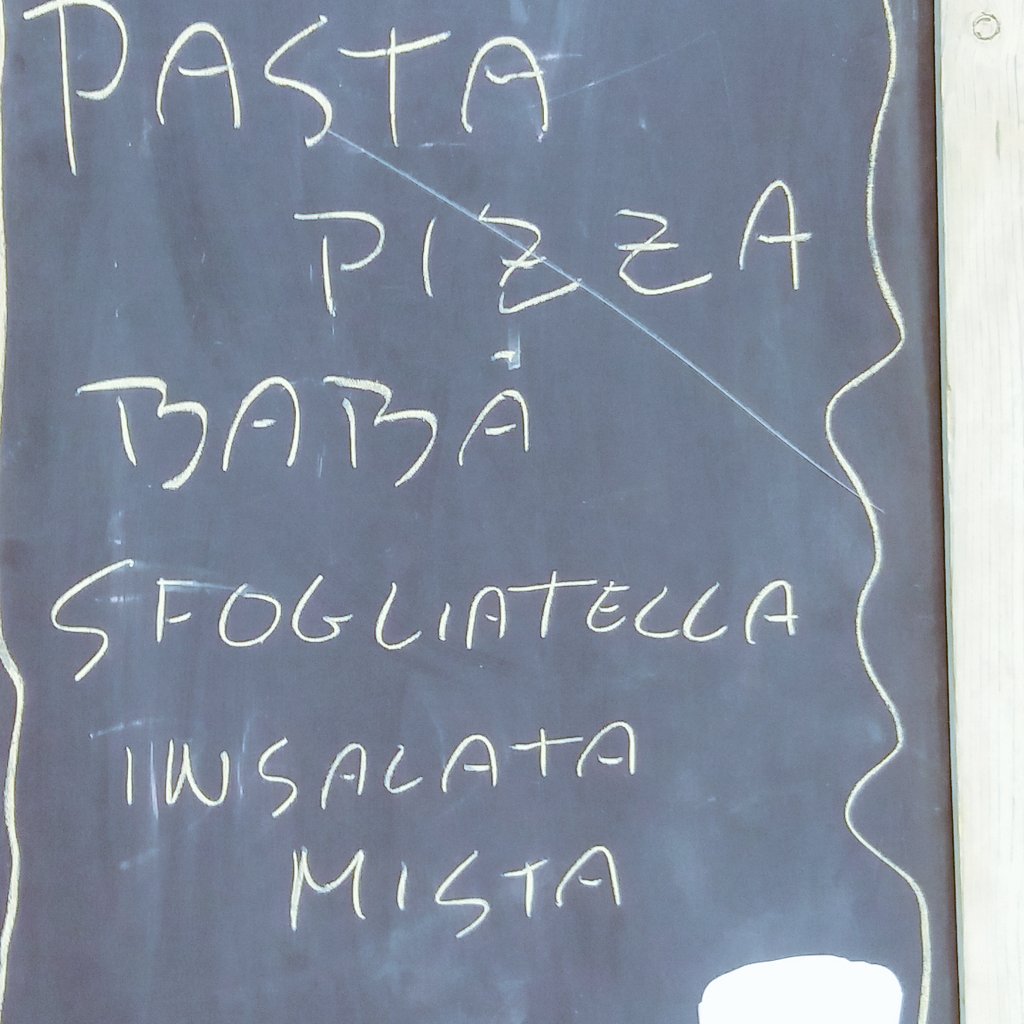 PASTA
PIZZA
BABÀ
SFOGLIATELLA
INSALATA
MISTA